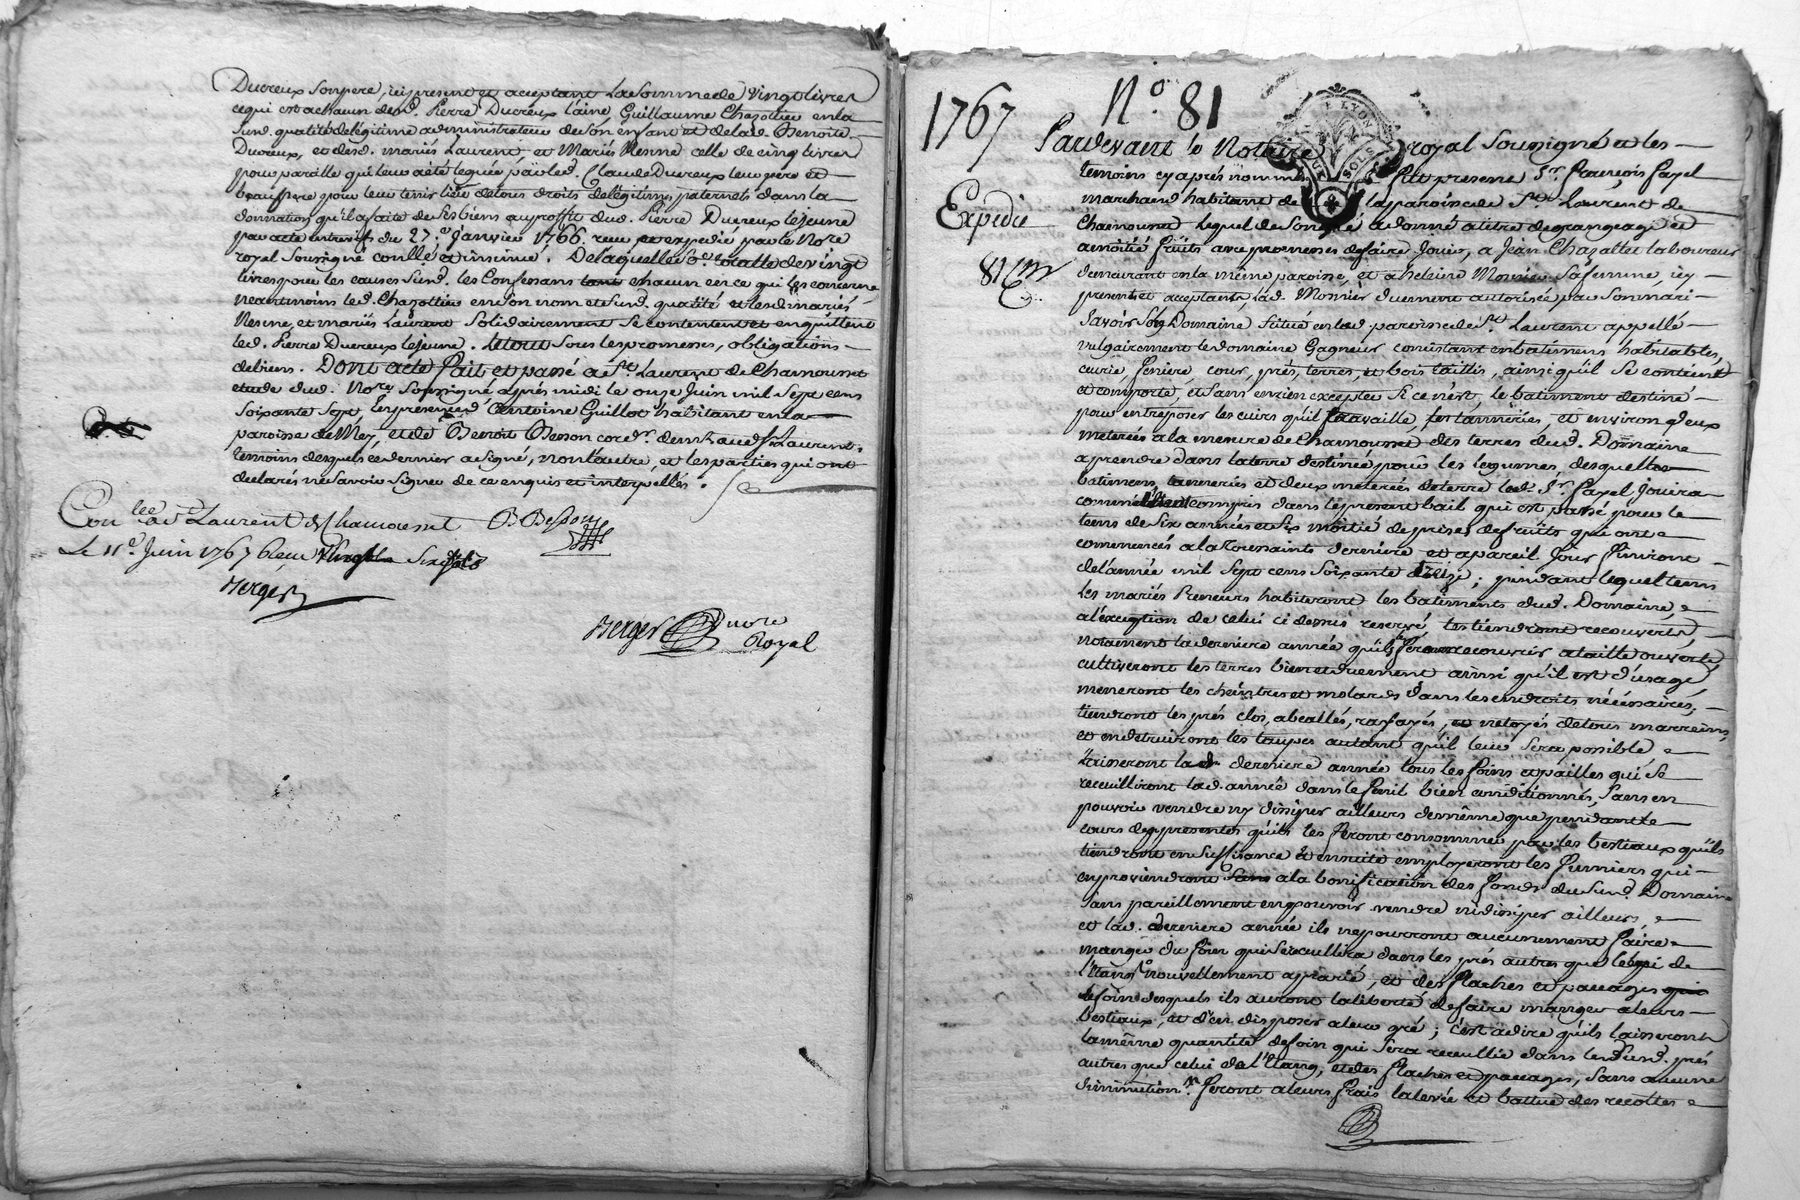 Ducreux son pere, icy present et acceptant la somme de vingt livres
ce qui est a chacun desd. Pierre Ducreux laine Guillaume Chazottier en la
susd. qualité de légitime administrateur de son enfant et de lad. Benoite
Ducreux, et desd. mariés Laurent, et mariés Nesme celle de cinq livres
pour pareille qui leur a été leguée par led. Claude Ducreux leur pere et
beaupere pour leur tenir lieu de tous droits de légitimes paternels dans la
donnation qu'il a faite de ses biens au proffit dud. Pierre Ducreux lejeune
par acte entre vifs du 27.e Janvier 1766. recu et expedié par le No.re
royal soussigné conllé et insinué. De laquelle so.e totalle de vingt
livres pour les causes susd. les confessans tant chacun en ce qui les concerne
neantmoins led. Chazottier en son nom et susd. qualité et lesd. mariés
Nesme, et mariés Laurent solidairement se contentent et en quittent
led. Pierre Ducreux lejeune. Le tout sous les promesses, obligations
de biens. Dont acte fait et passé a S.t Laurent de Chamousset
etude dud. No.re soussigné après midi le onze Juin mil sept cens
soixante sept, en presence d'Antoine Guillot habitant en la
paroisse de Mey, et de Benoit Besson cord.r demt. aud. St. Laurent,
temoins desquels ce dernier a signé, non l'autre, et les parties qui ont
declarés ne savoir signer de ce enquis et interpellés.
Con.llé a S.t Laurent de Chamousset B Besson
Le 11.e Juin 1767 Reçu six sols
Berger
Berger No.re
Royal
1767 N.o 81
Expedié
81
Pardevant le Notaire royal soussigné et les
temoins cy après nommés fut present S.r François Fayel
marchand habitant de la paroisse de S.t Laurent de
Chamousset lequel de son gré a donné a titre de grangeage et
a moitié fruits avec promesses de faire jouir, a Jean Chazottier laboureur
demeurant en la même paroisse, et a helaine Monnier sa femme, icy
present et acceptants, lad. Monnier duement autorisée par son mari
savoir son Domaine situé en lad. paroisse de S.t Laurent appellé
vulgairement le domaine Gagneur consistant en batimens habitables,
ecurie feniere cour, prés, terres, et bois taillis, ainsi qu'il se contient
et comporte, et sans en rien excepter si ce n'est, le batiment destiné
pour entreposer les cuirs qu'il travaille, les tanneries, et environ deux
meterées a la mesure de Chamousset des terres dud. Domaine
a prendre dans la terre destinée pour les legumes, desquelles
batimens, tanneries et deux meterées de terre led. S.r Fayel jouira
comme n'étant compris dans le present bail qui est passé pour le
tems de six années et six moitié de prises de fruits qui ont
commencés a la Toussaints derniere et a pareil jour finiront
de l'année mil sept cens soixante treize; pendant lequel tems
les mariés Preneurs habiteront les batiments dud. Domaine,
a l'exception de celui ci dessus reservé, les tiendront recouverts,
notament la derniere année qu'ils feront recouvrir a taille ouverte,
cultiveront les terres bien et duement ainsi qu'il est d'usage,
meneront les cheintres et molards dans les endroits nécéssaires,
tiendront les prés clos, abeallés, rafayés, et netoyés de tous marreins,
et en detruiront les taupes autant qu'il leur sera possible
laisseront la derniere année tous les foins et pailles qui se
receuilliront lad. année dans le fenil bien conditionnés, sans en
pouvoir vendre ny dissiper ailleurs de même que pendant le
cours des presentes qu'ils les feront consommer par les bestiaux qu'ils
tiendront en suffisance et ensuite employeront les fumiers qui
en proviendront a la bonification des fonds du susd. Domaine
sans pareillement en pouvoir vendre ni dissiper ailleurs,
et lad. derniere année ils ne pourront aucunement faire
manger du foin qui se receuillira dans les prés autres que celui de
l'étang nouvellement apraié, et des flaches et pacages
de foin desquels ils auront la liberté de faire manger a leurs
bestiaux, et d'en disposer a leur gré; c'est a dire qu'ils laisseront
la même quantité de foin qui sera receuillie dans les susd. prés
autres que celui de l'étang, et des flaches et pacages, sans aucune
diminution. Feront a leurs frais la levée et battue des recoltes